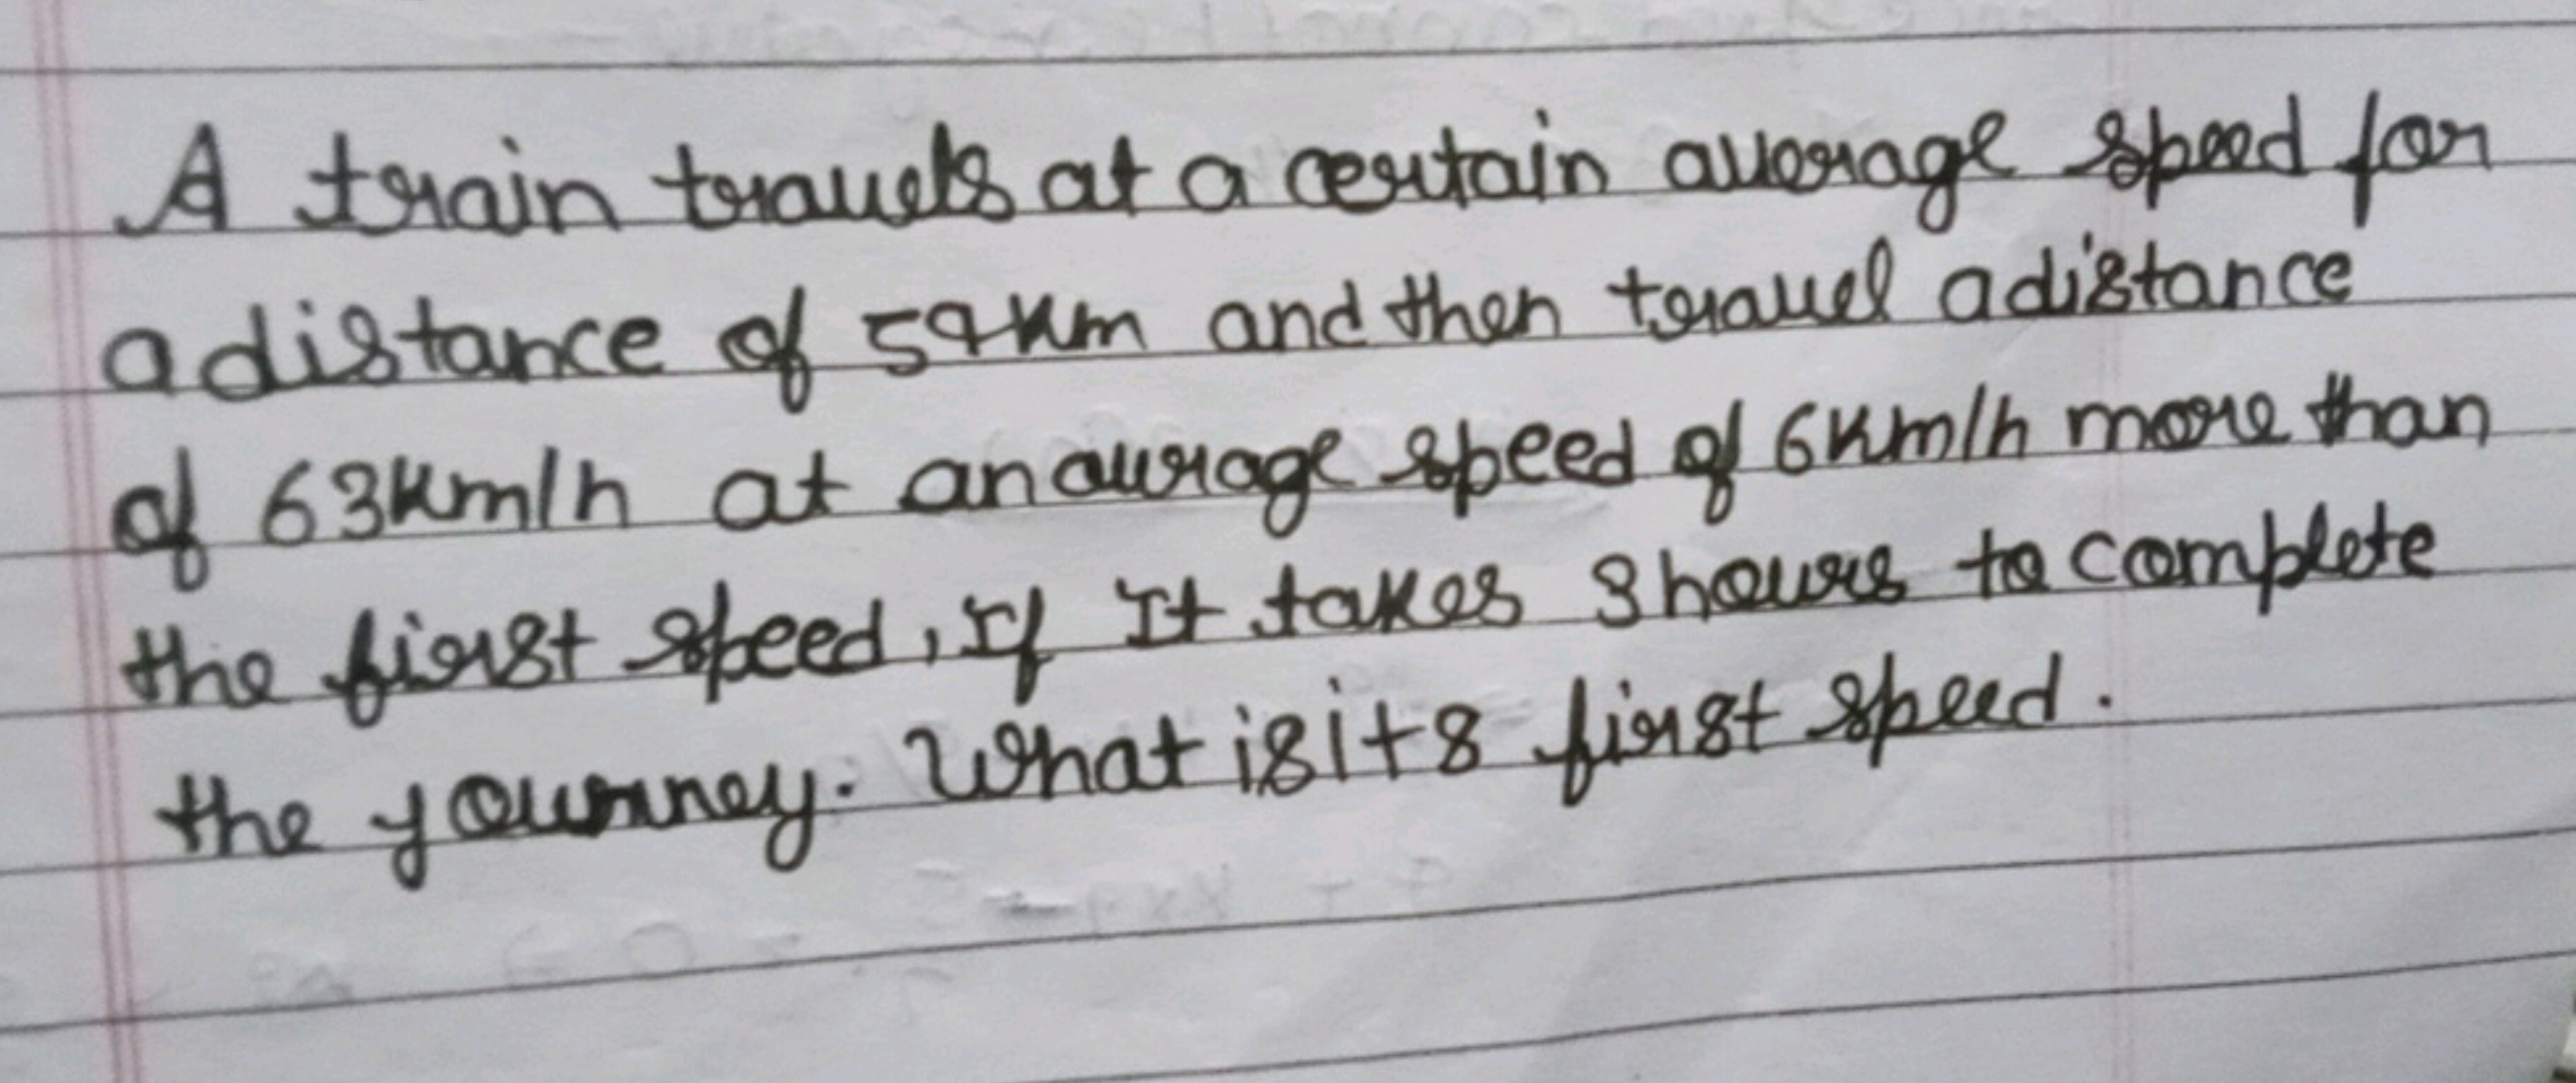 A train travels at a certain average speed for
a distance of 54km and then travel a distance
of 63km/h at an average speed of 6km/h more than
the first speed, If It takes 3 hours to complete
the yourney. What is its first speed.